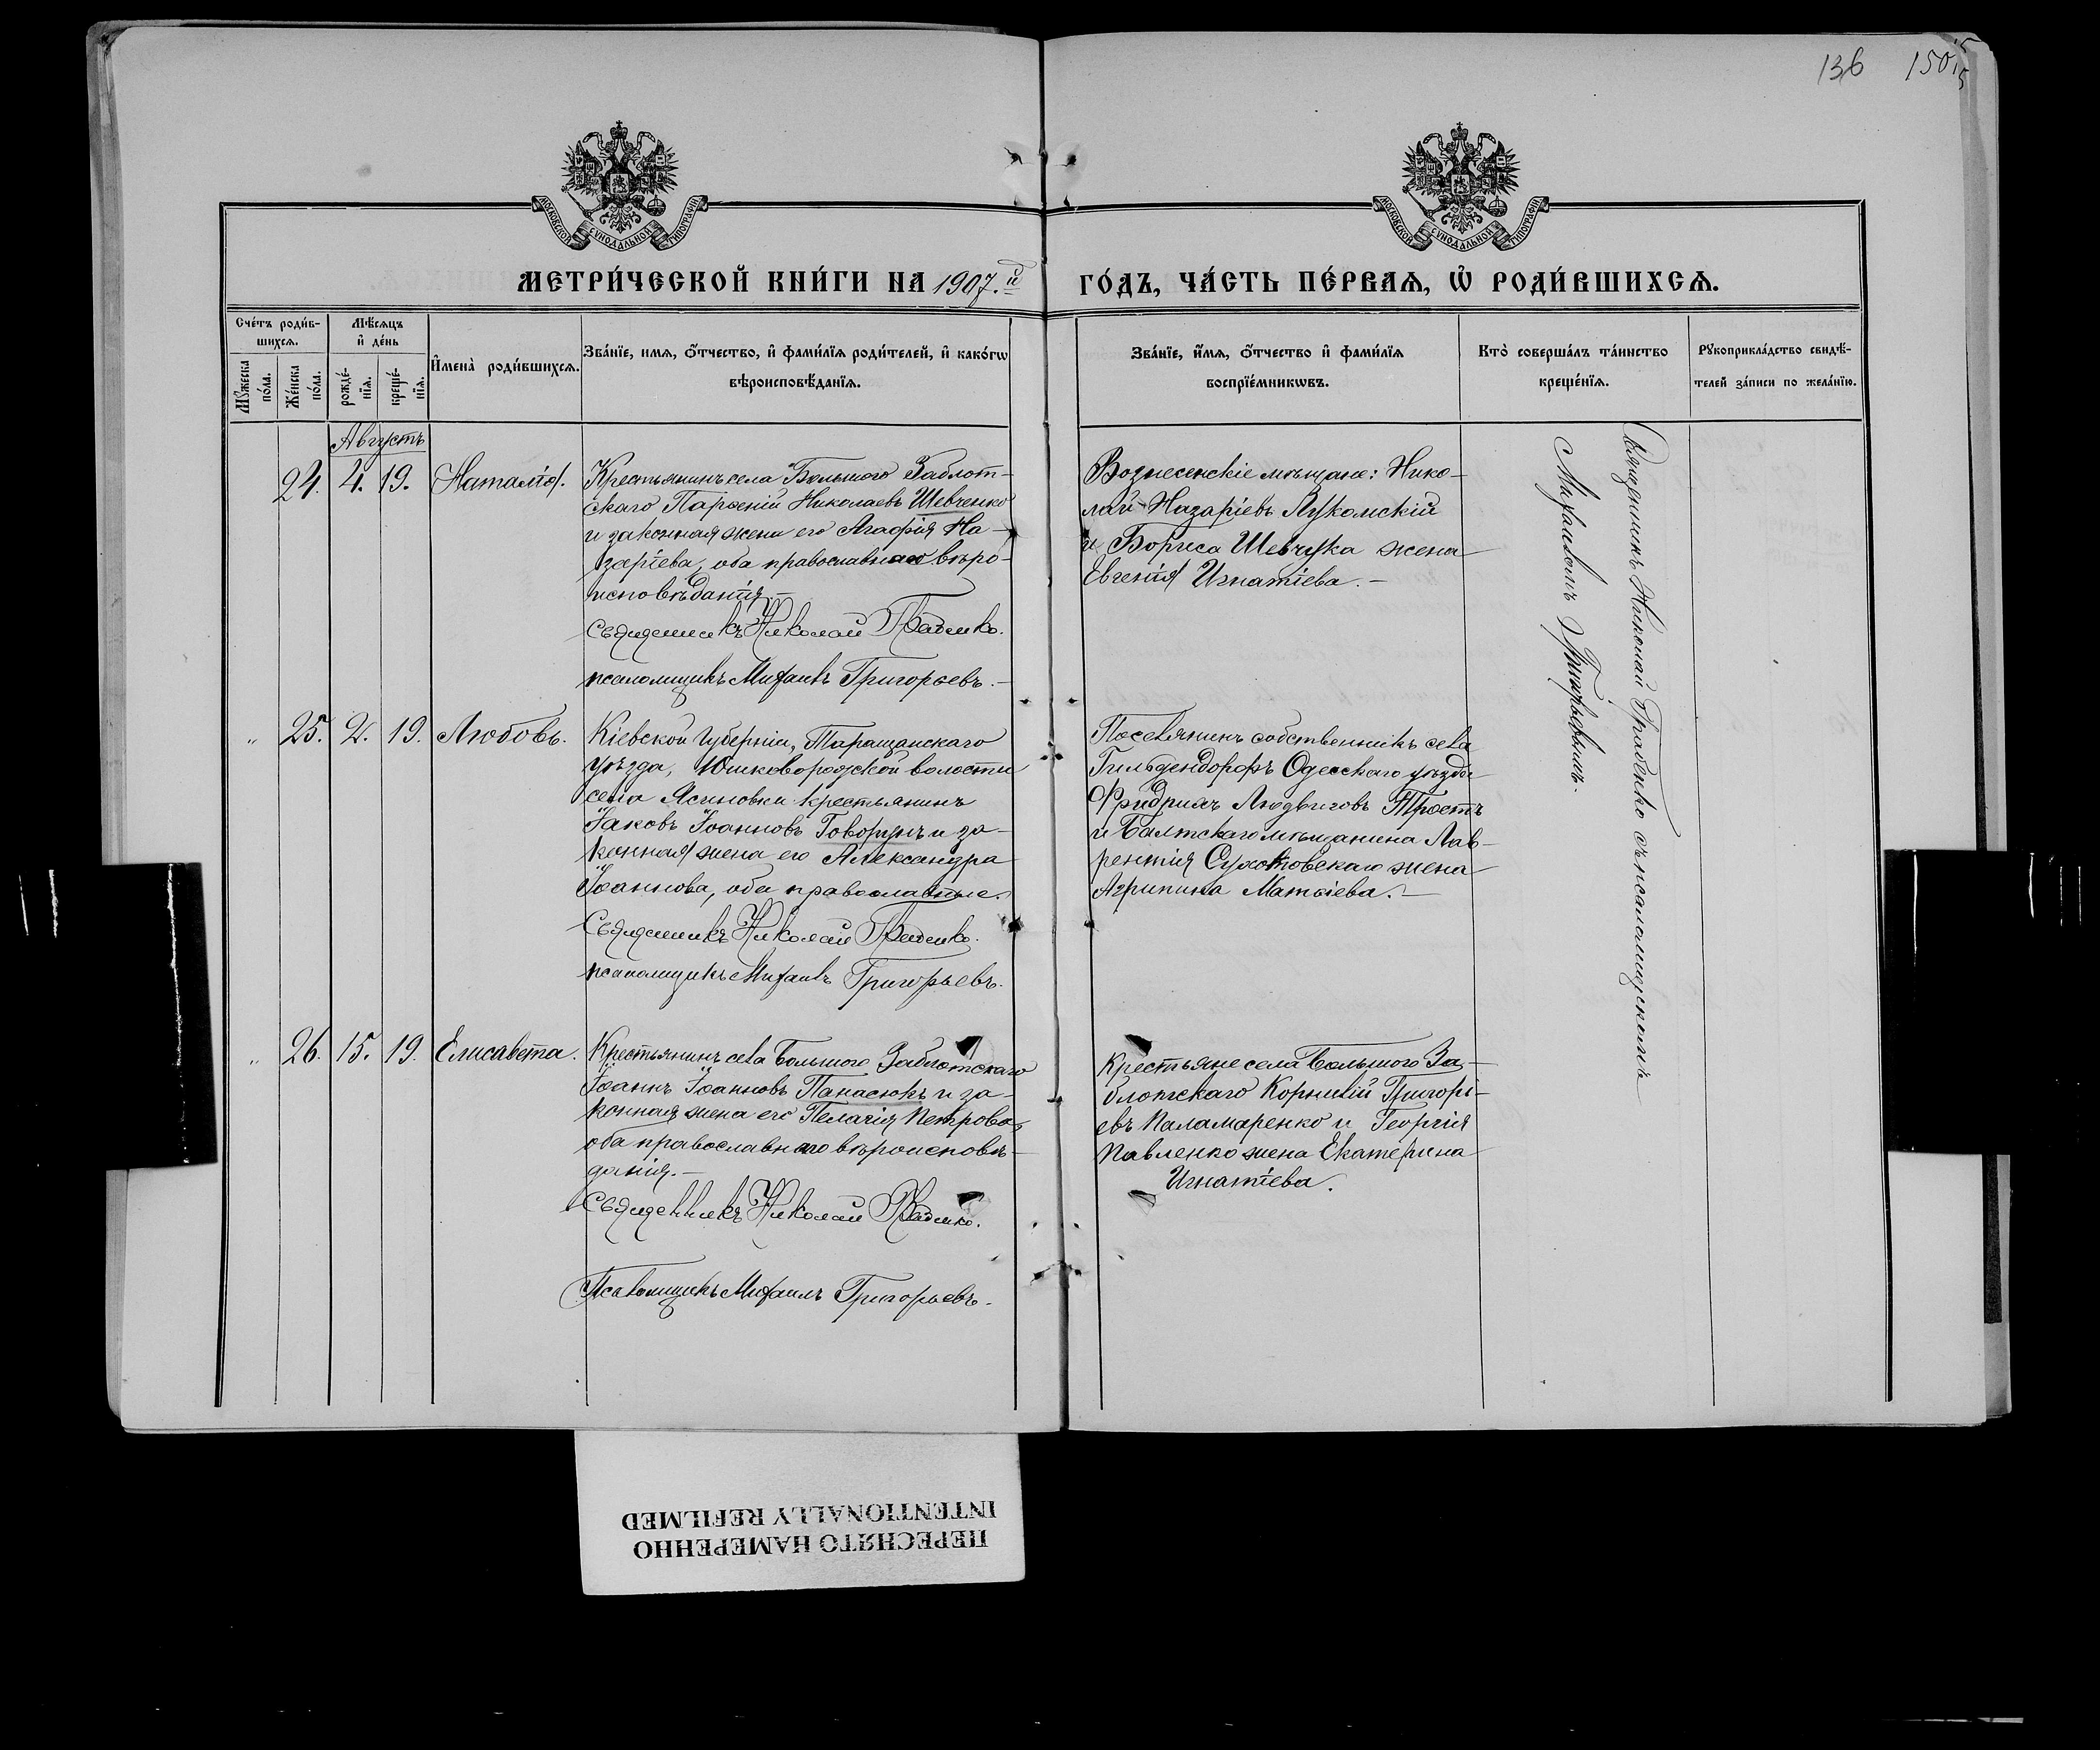 136 150
МОСКОВСКОЙ СѴНОДАЛЬНОЙ ТИПОГРАФІИ
МОСКОВСКОЙ СѴНОДАЛЬНОЙ ТИПОГРАФІИ
МЕТРИ́ЧЕСКОЙ КНИ́ГИ НА 1907.й ГО́ДЪ, ЧА́СТЬ ПЕ́РВАѦ, Ѡ҆ РОДИ́ВШИХСѦ.
Сче́тъ роди́в-
шихсѧ.
Мꙋ́жеска
по́ла.
Же́нска
по́ла.
Мѣ́сѧцъ
и҆ де́нь
рожде́-
нїѧ.
креще́-
нїѧ.
И҆мена̀ роди́вшихсѧ.
Зва́нїе, имѧ, ѻ҆́тчество, и҆ фами́лїѧ роди́телей, и҆ како́гѡ
вѣроисповѣ́данїѧ.
Зва́нїе, и҆́мѧ, ѻ҆́тчество и҆ фами́лїѧ
воспрїе́мникѡвъ.
Кто̀ соверша́лъ та́инство
креще́нїѧ.
Рꙋкоприкла́дство свидѣ́-
телей за́писи по жела́нїю.
Августъ
24. 4. 19. Наталія.
Крестьянинъ села Большого Заблот-
скаго Парѳеній Николаевъ Шевченко
и законная жена его Агафія На-
заріева, оба православнаго вѣро-
исповѣданія.-
Священникъ Николай
псаломщикъ Михаилъ Григорьевъ.-
Вознесенскіе мѣщане: Нико-
лай Назаріевъ Лукомскій
и Бориса Шевчука жена
Евгенія Игнатіева.-
" 25. 2. 19. Любовь.
Кіевской губерніи, Таращанскаго
уѣзда, Юшковорожской волости
села Ясиновки крестьянинъ
Іаковъ Іоанновъ Говорунъ и за-
конная жена его Александра
Іоаннова, оба православные.
Священникъ Николай
псаломщикъ Михаилъ Григорьевъ.
Поселянинъ собственникъ села
Гильдендорфъ Одесскаго уѣзда
Фридрихъ Людвиговъ Тростъ
и Балтскаго мѣщанина Лав-
рентія жена
Агрипина Матѳіева.-
" 26. 15. 19. Елисавета.
Крестьянинъ села Большого Заблотскаго
Іоаннъ Іоанновъ Панасюкъ и за-
конная жена его Пелагія Петрова,
оба православнаго вѣроисповѣ-
данія.-
Священникъ Николай
Псаломщикъ Михаилъ Григорьевъ.
Крестьяне села Большого За-
блотскаго Корнилій Григорі-
евъ Паламаренко и Георгія
Павленко жена Екатерина
Игнатіева.
Священникъ Николай съ псаломщикомъ
Михаиломъ Григорьевымъ.
ПЕРЕСНЯТО НАМЕРЕННО
INTENTIONALLY REFILMED